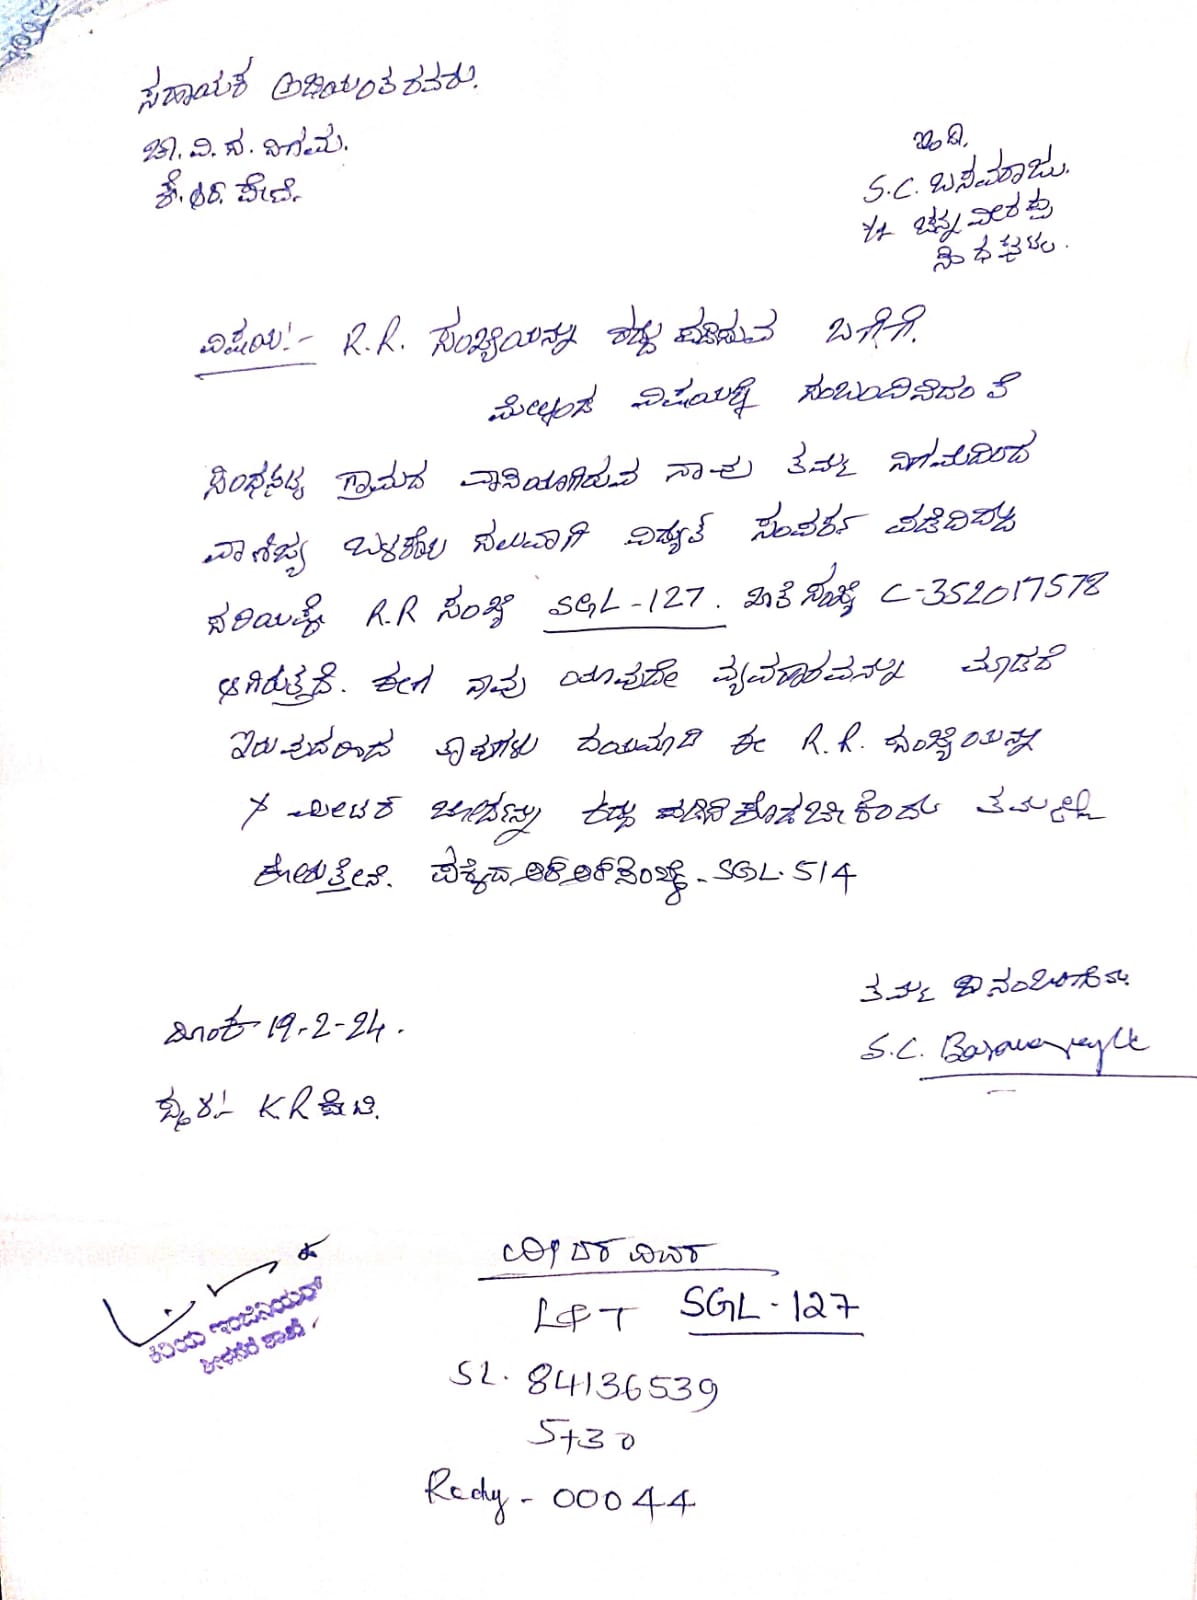 ಸಹಾಯಕ ಅಭಿಯಂತರವರು.
ಚಾ. ವಿ. ಸ. ನಿಗಮ.
ಕೆ. ಆರ್. ಪೇಟೆ.
ಇಂದ.
S.C. ಬಸವರಾಜು.
ಚನ್ನವೀರಪ್ಪ
ವಿಷಯ:- R.R. ಸಂಖ್ಯೆಯನ್ನು ರದ್ದು ಪಡಿಸುವ ಬಗೆಗೆ.
ಮೇಲ್ಕಂಡ ವಿಷಯಕ್ಕೆ ಸಂಬಂದಿಸಿದಂತೆ
ಗ್ರಾಮದ ವಾಸಿಯಾಗಿರುವ ನಾನು ತಮ್ಮ ನಿಗಮದಿಂದ
ವಾಣಿಜ್ಯ ಬಳಕೆಯ ಸಲುವಾಗಿ ವಿದ್ಯುತ್ ಸಂಪರ್ಕ ಪಡೆದಿದ್ದು
ಸರಿಯಷ್ಟೇ R.R ಸಂಖ್ಯೆ SGL-127. ಖಾತೆ ಸಂಖ್ಯೆ C-352017578
ಆಗಿರುತ್ತದೆ. ಈಗ ನಾವು ಯಾವುದೇ ವ್ಯವಹಾರವನ್ನು ಮಾಡದೆ
ಇರುವುದರಿಂದ ತಾವುಗಳು ದಯಮಾಡಿ ಈ R.R. ಸಂಖ್ಯೆಯನ್ನು
ಮೀಟರ್ ಬೋರ್ಡನ್ನು ರದ್ದು ಪಡಿಸಿಕೊಡಬೇಕೆಂದು ತಮ್ಮಲ್ಲಿ
ಕೇಳುತ್ತೇನೆ. ಪಕ್ಕದ ಆರ್ ಆರ್ ಸಂಖ್ಯೆ - SGL-514
ತಮ್ಮ
S.C. Basavaraju
ದಿನಾಂಕ 19-2-24.
ಸ್ಥಳ:- K R ಪೇಟೆ.
ಕಿರಿಯ ಇಂಜಿನಿಯರ್
ಶಾಖೆ
ಮೀಟರ್ ವಿವರ
L&T SGL-127
SL. 84136539
5+30
Redg - 00044